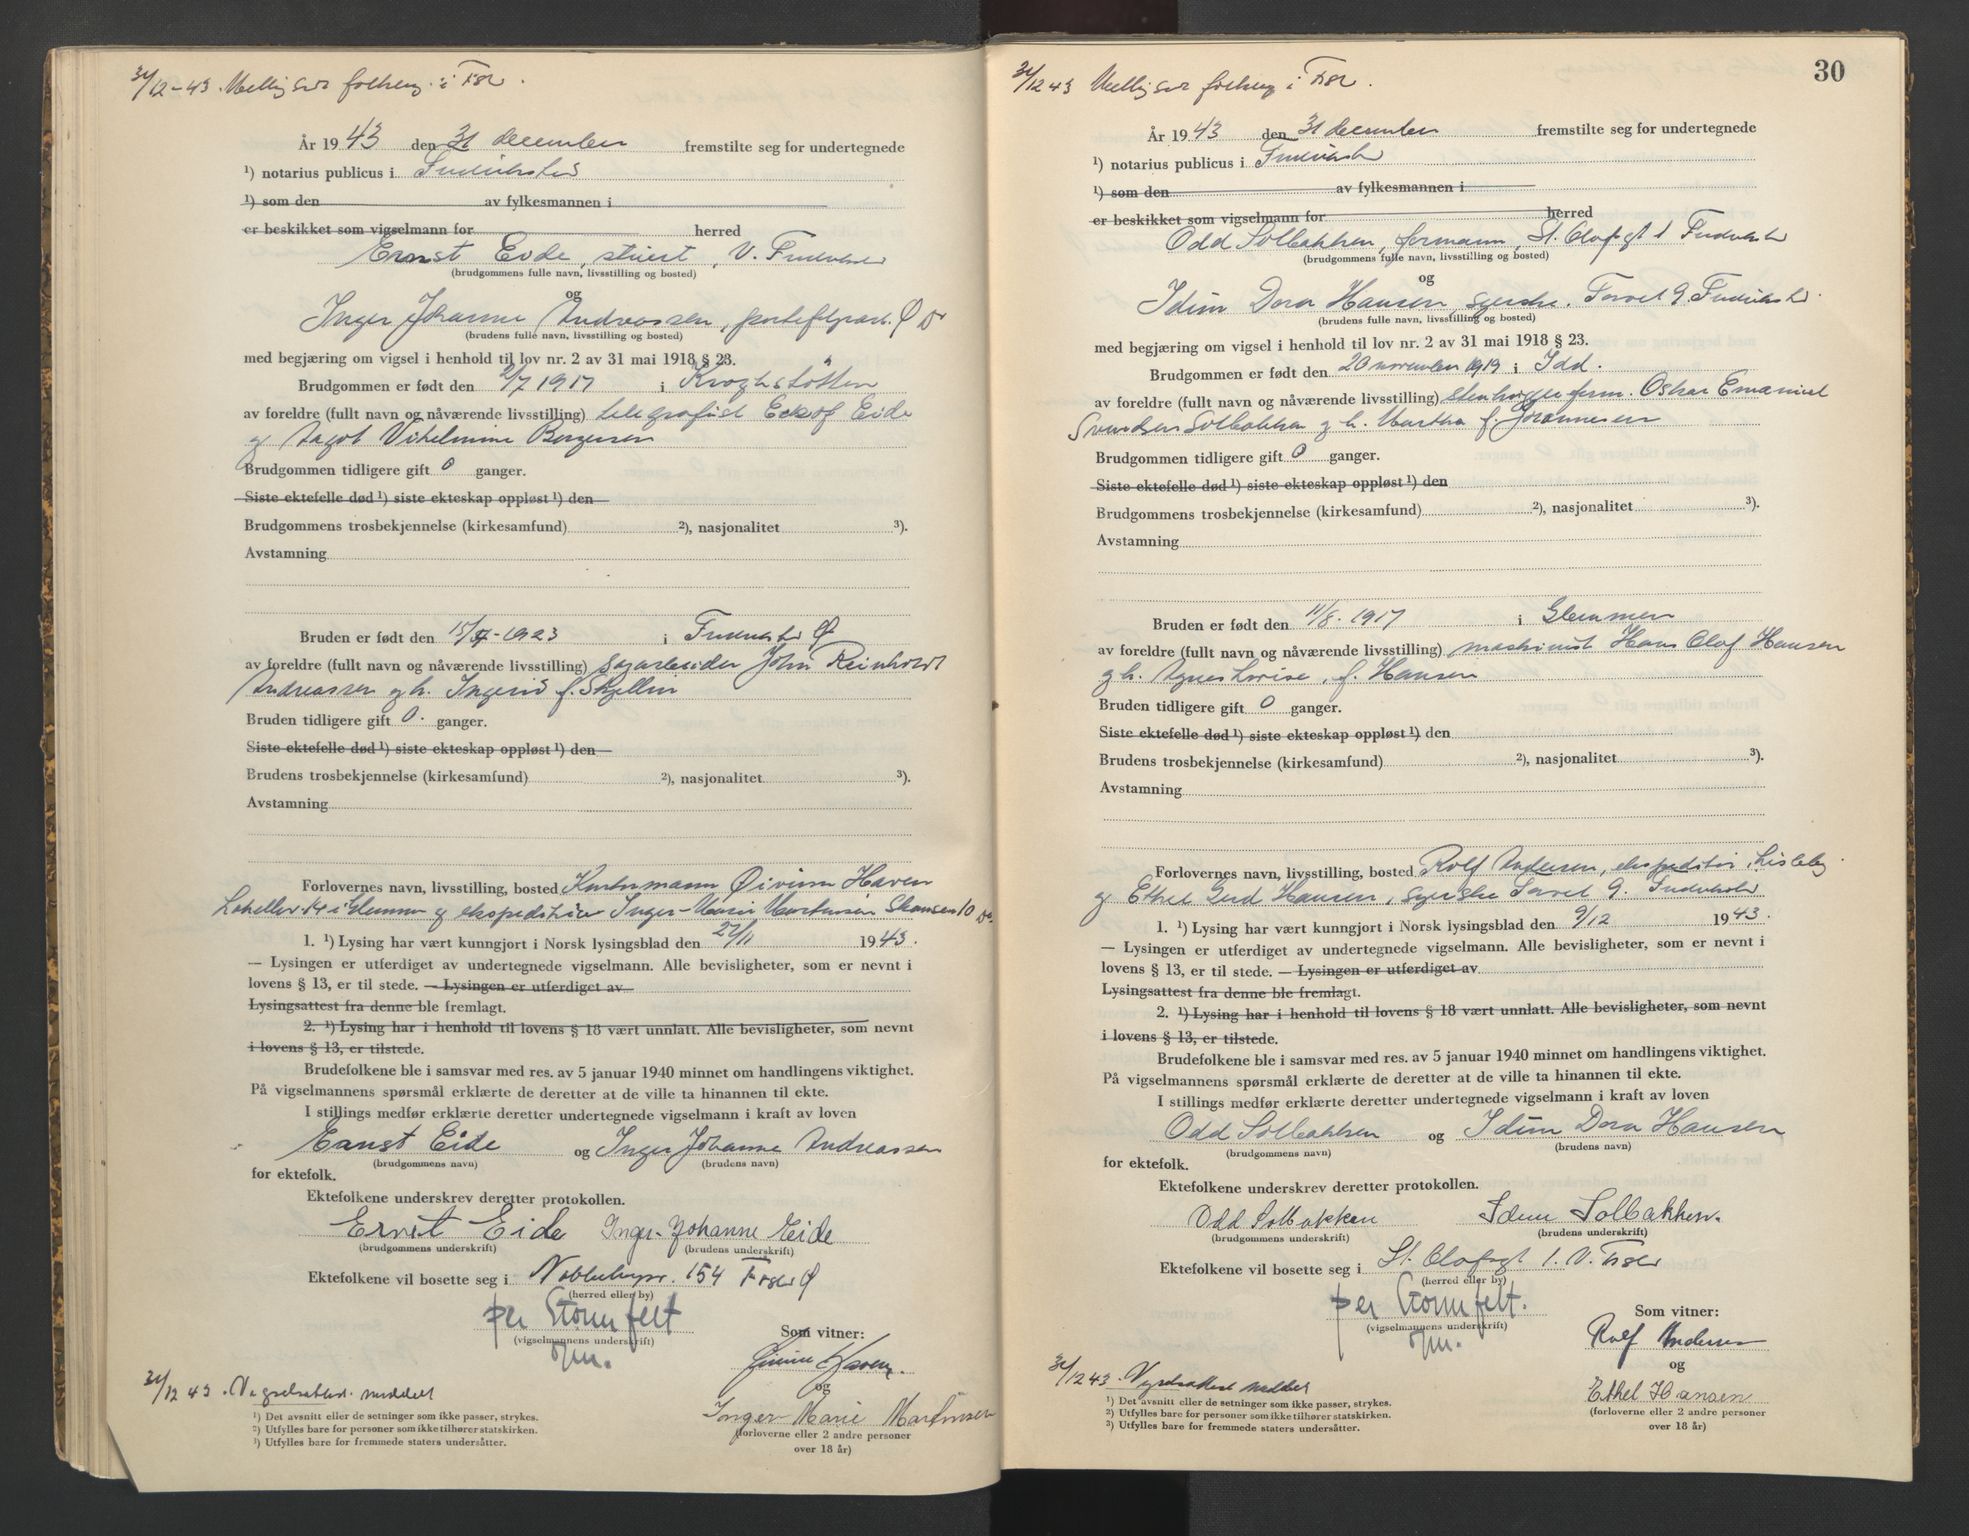 31/12-43. folkereg. i Fst.
År 1943 den 31 december fremstilte seg for undertegnede
¹) notarius publicus i Fredrikstad
¹) som den av fylkesmannen i
er beskikket som vigselmann for herred
Ernst Eide, stuert, V. Fredrikstad
(brudgommens fulle navn, livsstilling og bosted)
og
Inger Johanne Andreassen,
(brudens fulle navn, livsstilling og bosted)
med begjæring om vigsel i henhold til lov nr. 2 av 31 mai 1918 § 23.
Brudgommen er født den 2/7 1917 i
av foreldre (fullt navn og nåværende livsstilling) telegrafist Eide
og Dagot Vilhelmine Borgersen
Brudgommen tidligere gift 0 ganger.
Siste ektefelle død ¹) siste ekteskap oppløst ¹) den
Brudgommens trosbekjennelse (kirkesamfund) ²), nasjonalitet ³).
Avstamning
Bruden er født den 1923 i Fredrikstad Ø
av foreldre (fullt navn og nåværende livsstilling) sagarbeider John Reinholdt
Andreassen og h. Ingerid f. Skjellin
Bruden tidligere gift 0. ganger.
Siste ektefelle død ¹) siste ekteskap oppløst ¹) den
Brudens trosbekjennelse (kirkesamfund) ²), nasjonalitet ³).
Avstamning
Forlovernes navn, livsstilling, bosted Øivinn Haven
14 i Glemmen og ekspeditrise Inger-Marie Martinsen Skansen 10 Do.
1. ¹) Lysing har vært kunngjort i Norsk lysingsblad den 27/11 1943.
— Lysingen er utferdiget av undertegnede vigselmann. Alle bevisligheter, som er nevnt i
lovens § 13, er til stede. — Lysingen er utferdiget av
Lysingsattest fra denne ble fremlagt.
2. ¹) Lysing har i henhold til lovens § 18 vært unnlatt. Alle bevisligheter, som nevnt
i lovens § 13, er tilstede.
Brudefolkene ble i samsvar med res. av 5 januar 1940 minnet om handlingens viktighet.
På vigselmannens spørsmål erklærte de deretter at de ville ta hinannen til ekte.
I stillings medfør erklærte deretter undertegnede vigselmann i kraft av loven
Ernst Eide og Inger Johanne Andreassen
(brudgommens navn) (brudens navn)
for ektefolk.
Ektefolkene underskrev deretter protokollen.
Ernst Eide Inger-Johanne Eide
(brudgommens underskrift) (brudens underskrift)
Ektefolkene vil bosette seg i 154 Ø
(herred eller by)
per Stormfelt
(vigselmannens underskrift)
Som vitner:
Øivinn Haven.
og
Inger Marie Martinsen
(forloverne eller 2 andre personer
over 18 år)
31/12 43. Vigselsattest meddelt
¹) Det avsnitt eller de setninger som ikke passer, strykes.
²) Utfylles bare for personer som ikke tilhører statskirken.
³) Utfylles bare for fremmede staters undersåtter.
30
31/12 43 folkereg i Fst.
År 1943 den 31 december fremstilte seg for undertegnede
¹) notarius publicus i Fredrikstad
¹) som den av fylkesmannen i
er beskikket som vigselmann for herred
Odd Solbakken, formann, St. Olafsgt 1 Fredrikstad
(brudgommens fulle navn, livsstilling og bosted)
og
Idun Dora Hansen, syerske. Torvet 9. Fredrikstad.
(brudens fulle navn, livsstilling og bosted)
med begjæring om vigsel i henhold til lov nr. 2 av 31 mai 1918 § 23.
Brudgommen er født den 20 november 1919 i Idd.
av foreldre (fullt navn og nåværende livsstilling) stenhuggerform. Oskar Emanuel
Svendsen Solbakken og h. Martha f. Johannesen
Brudgommen tidligere gift 0 ganger.
Siste ektefelle død ¹) siste ekteskap oppløst ¹) den
Brudgommens trosbekjennelse (kirkesamfund) ²), nasjonalitet ³).
Avstamning
Bruden er født den 11/8. 1917 i Glemmen
av foreldre (fullt navn og nåværende livsstilling) maskinist Hans Olaf Hansen
og h. Agnes Lovise, f. Hansen
Bruden tidligere gift 0 ganger.
Siste ektefelle død ¹) siste ekteskap oppløst ¹) den
Brudens trosbekjennelse (kirkesamfund) ²), nasjonalitet ³).
Avstamning
Forlovernes navn, livsstilling, bosted Rolf Andersen, ekspeditør, Lisleby.
og Ethel Gerd Hansen, syerske Torvet 9. Fredrikstad
1. ¹) Lysing har vært kunngjort i Norsk lysingsblad den 9/12 1943.
— Lysingen er utferdiget av undertegnede vigselmann. Alle bevisligheter, som er nevnt i
lovens § 13, er til stede. — Lysingen er utferdiget av
Lysingsattest fra denne ble fremlagt.
2. ¹) Lysing har i henhold til lovens § 18 vært unnlatt. Alle bevisligheter, som nevnt
i lovens § 13, er tilstede.
Brudefolkene ble i samsvar med res. av 5 januar 1940 minnet om handlingens viktighet.
På vigselmannens spørsmål erklærte de deretter at de ville ta hinannen til ekte.
I stillings medfør erklærte deretter undertegnede vigselmann i kraft av loven
Odd Solbakken og Idun Dora Hansen
(brudgommens navn) (brudens navn)
for ektefolk.
Ektefolkene underskrev deretter protokollen.
Odd Solbakken Idun Solbakken.
(brudgommens underskrift) (brudens underskrift)
Ektefolkene vil bosette seg i St. Olafsgt 1. V.
(herred eller by)
per Stormfelt.
(vigselmannens underskrift)
Som vitner:
Rolf Andersen
og
Ethel Hansen
(forloverne eller 2 andre personer
over 18 år)
31/12 43. Vigselsattest meddelt
¹) Det avsnitt eller de setninger som ikke passer, strykes.
²) Utfylles bare for personer som ikke tilhører statskirken.
³) Utfylles bare for fremmede staters undersåtter.